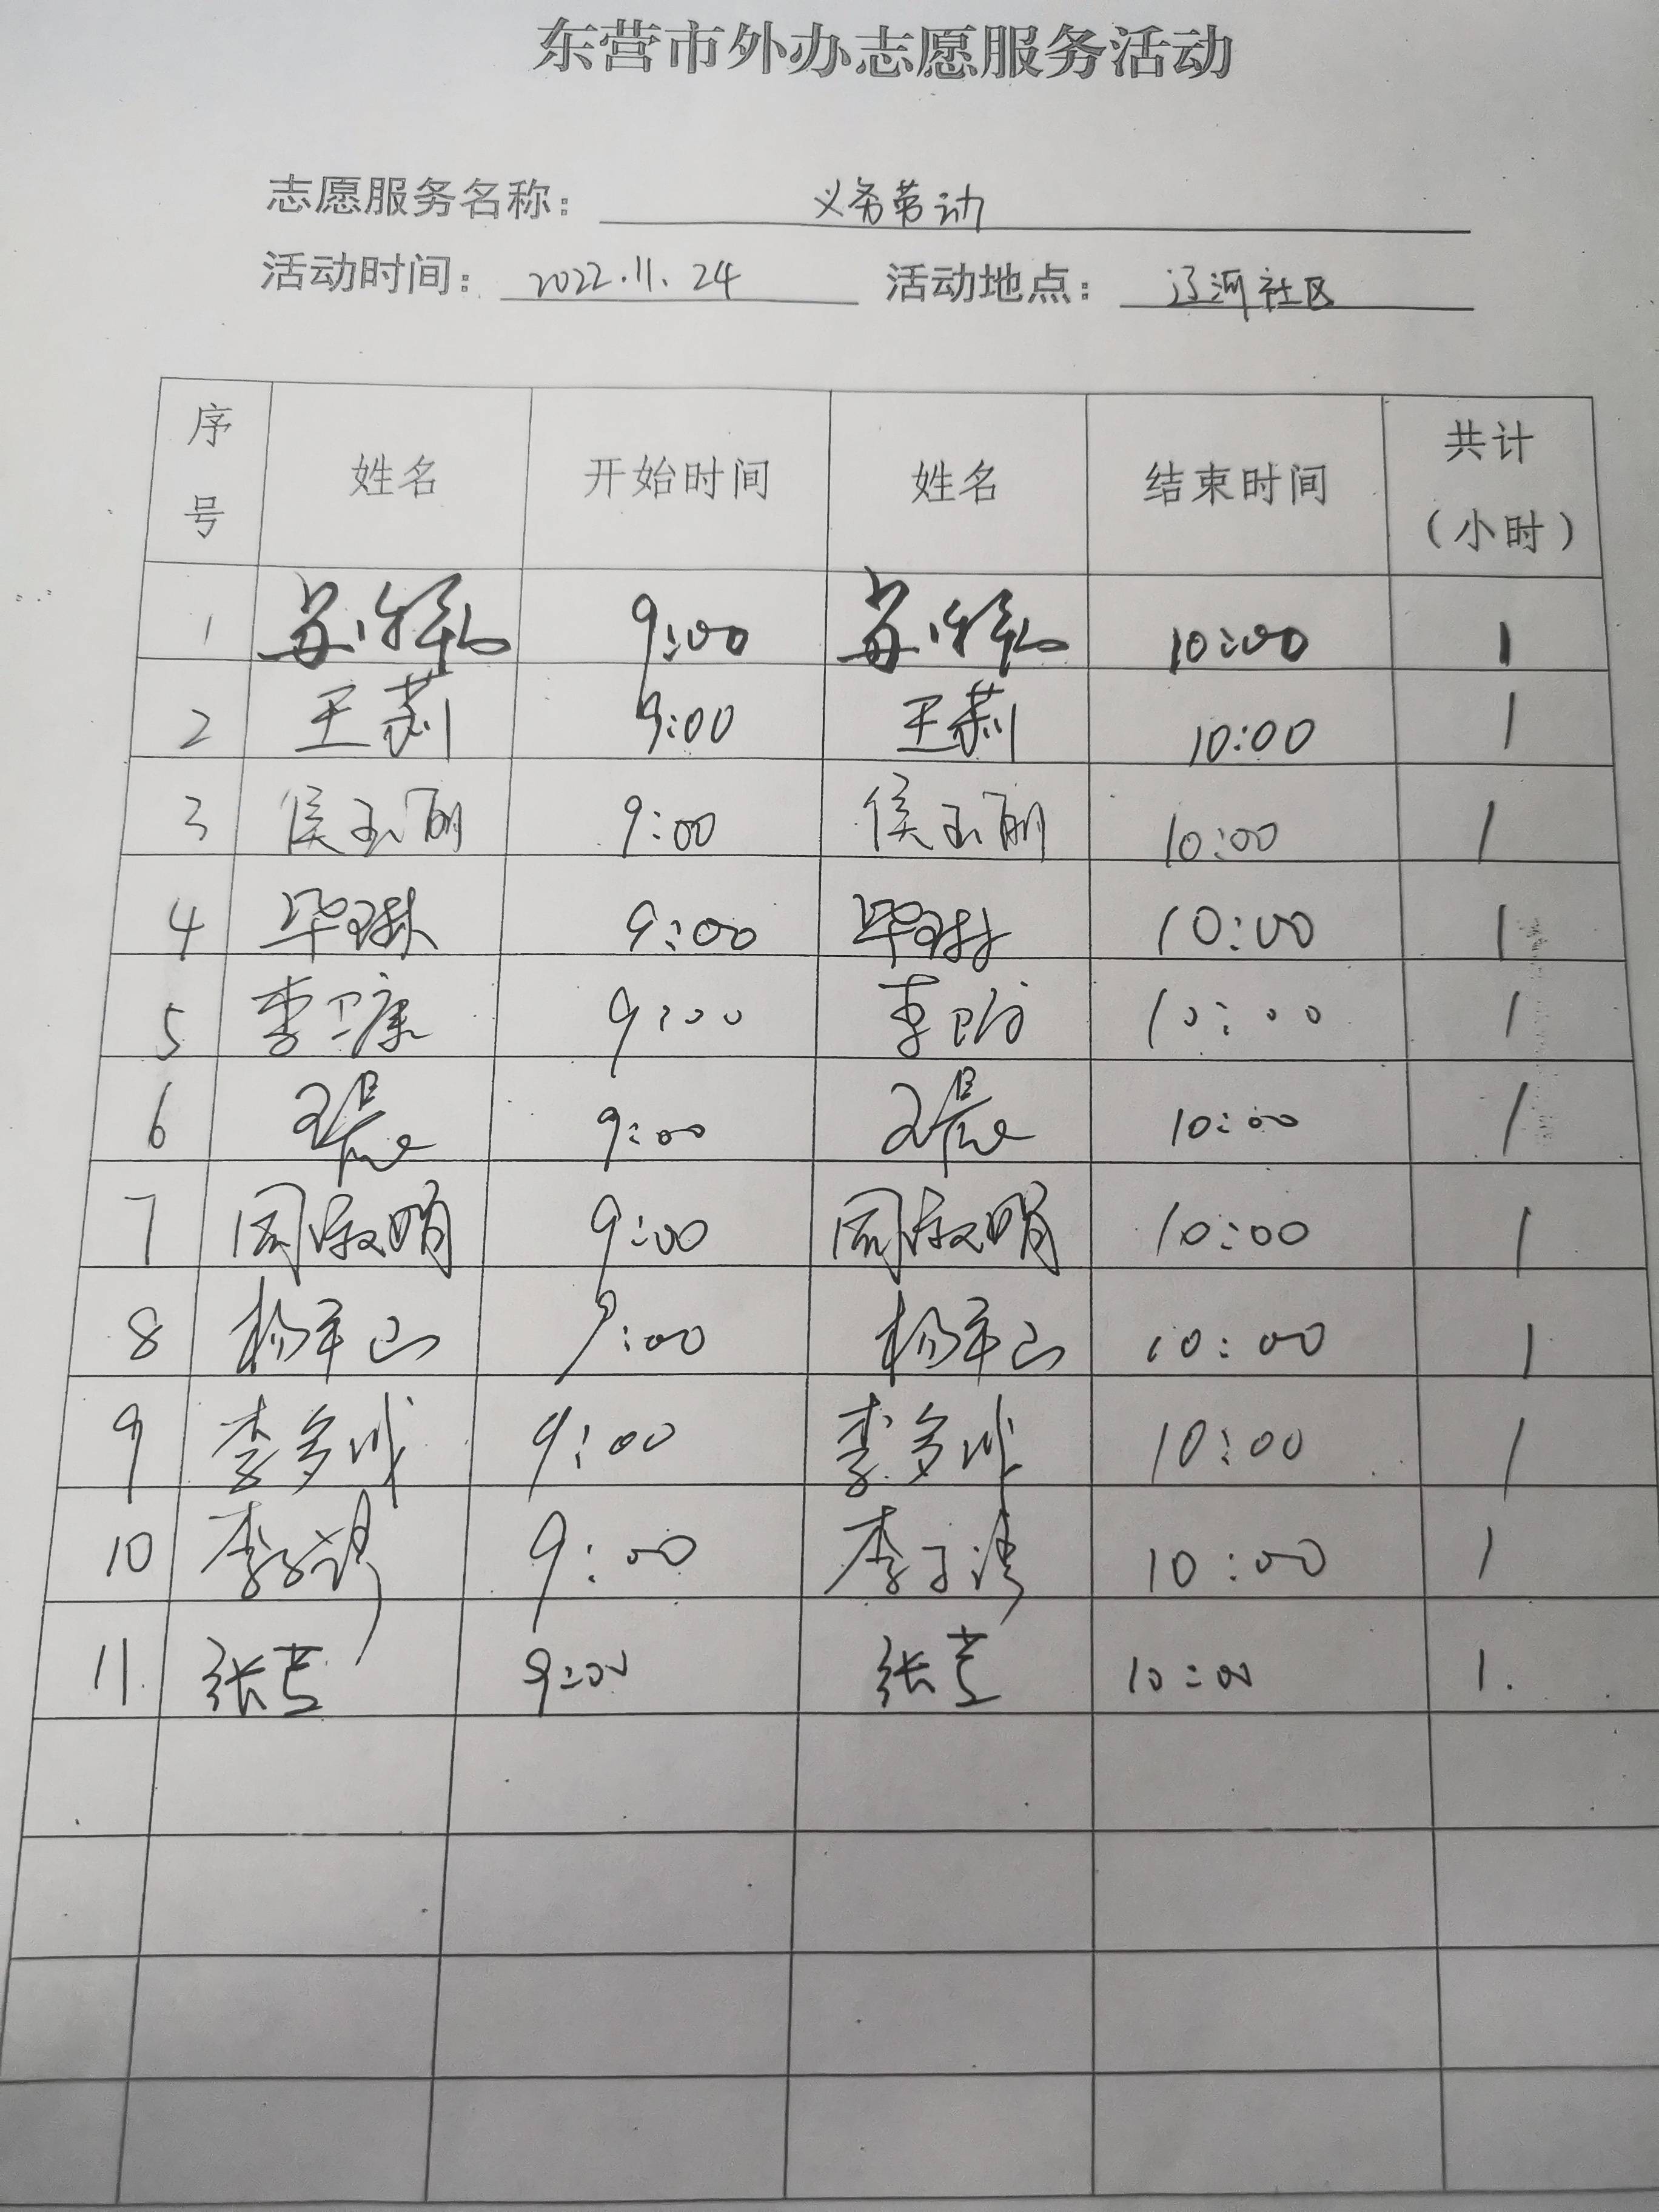 东营市外办志愿服务活动
志愿服务名称： 义务劳动
活动时间： 2022.11.24 活动地点： 辽河社区
序号 姓名 开始时间 姓名 结束时间 共计（小时）
1 9:00 10:00 1
2 王莉 9:00 王莉 10:00 1
3 侯玉丽 9:00 侯玉丽 10:00 1
4 毕琳 9:00 毕琳 10:00 1
5 李卫康 9:00 李 10:00 1
6 王晨 9:00 王晨 10:00 1
7 周敏明 9:00 周敏明 10:00 1
8 杨军山 9:00 杨军山 10:00 1
9 李多 9:00 李多 10:00 1
10 李子 9:00 李子 10:00 1
11. 张芸 9:00 张芸 10:00 1.